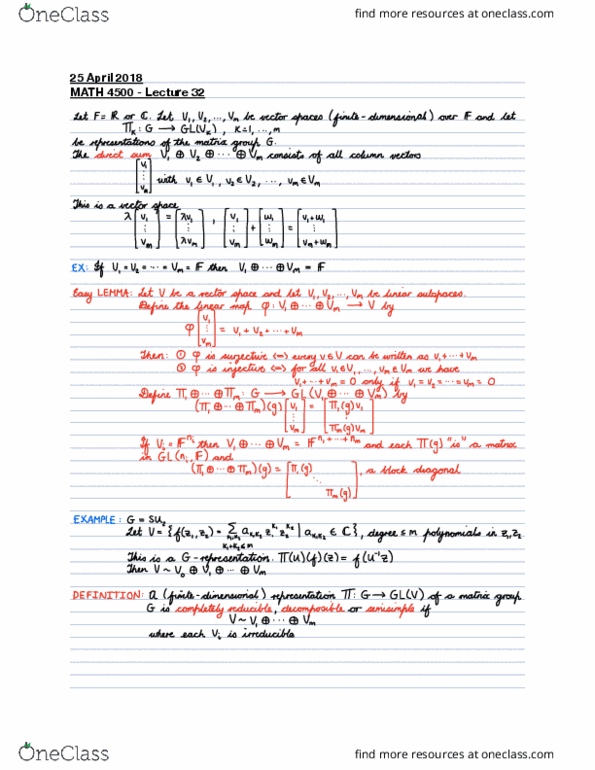 OneClass
find more resources at oneclass.com
25 April 2018
MATH 4500 - Lecture 32
Let F = ℝ or ℂ. Let V₁, V₂, ..., Vₘ be vector spaces (finite-dimensional) over F and let
Πₖ : G → GL(Vₖ), k=1, ..., m
be representations of the matrix group G.
The direct sum V₁ ⊕ V₂ ⊕ ... ⊕ Vₘ consists of all column vectors
[v₁ ⋮ vₘ] with v₁ ∈ V₁, v₂ ∈ V₂, ..., vₘ ∈ Vₘ
This is a vector space
λ [v₁ ⋮ vₘ] = [λv₁ ⋮ λvₘ], [v₁ ⋮ vₘ] + [w₁ ⋮ wₘ] = [v₁+w₁ ⋮ vₘ+wₘ]
EX: If V₁ = V₂ = ... = Vₘ = F then V₁ ⊕ ... ⊕ Vₘ = F
Easy LEMMA: Let V be a vector space and let V₁, V₂, ..., Vₘ be linear subspaces.
Define the linear map φ : V₁ ⊕ ... ⊕ Vₘ → V by
φ [v₁ ⋮ vₘ] = v₁ + v₂ + ... + vₘ
Then: ① φ is surjective <=> every v ∈ V can be written as v₁ + ... + vₘ
② φ is injective <=> for all v₁ ∈ V₁, ..., vₘ ∈ Vₘ we have
v₁ + ... + vₘ = 0 only if v₁ = v₂ = ... = vₘ = 0
Define Π₁ ⊕ ... ⊕ Πₘ : G → GL(V₁ ⊕ ... ⊕ Vₘ) by
(Π₁ ⊕ ... ⊕ Πₘ)(g) [v₁ ⋮ vₘ] = [Π₁(g)v₁ ⋮ Πₘ(g)vₘ]
If Vᵢ = F^nᵢ then V₁ ⊕ ... ⊕ Vₘ = F^(n₁ + ... + nₘ) and each Π(g) "is" a matrix
in GL(nᵢ, F) and
(Π₁ ⊕ ... ⊕ Πₘ)(g) = [Π₁(g) ⋱ Πₘ(g)], a block diagonal
EXAMPLE: G = SU₂
Let V = {f(z₁, z₂) = Σ_(k₁,k₂, k₁+k₂≤m) a_(k₁k₂) z₁^k₁ z₂^k₂ | a_(k₁k₂) ∈ ℂ}, degree ≤ m polynomials in z₁, z₂
This is a G-representation. Π(U)(f)(z) = f(U⁻¹z)
Then V ~ V₀ ⊕ V₁ ⊕ ... ⊕ Vₘ
DEFINITION: a (finite-dimensional) representation Π: G → GL(V) of a matrix group
G is completely reducible, decomposable or semisimple if
V ~ V₁ ⊕ ... ⊕ Vₘ
where each Vᵢ is irreducible
OneClass
find more resources at oneclass.com